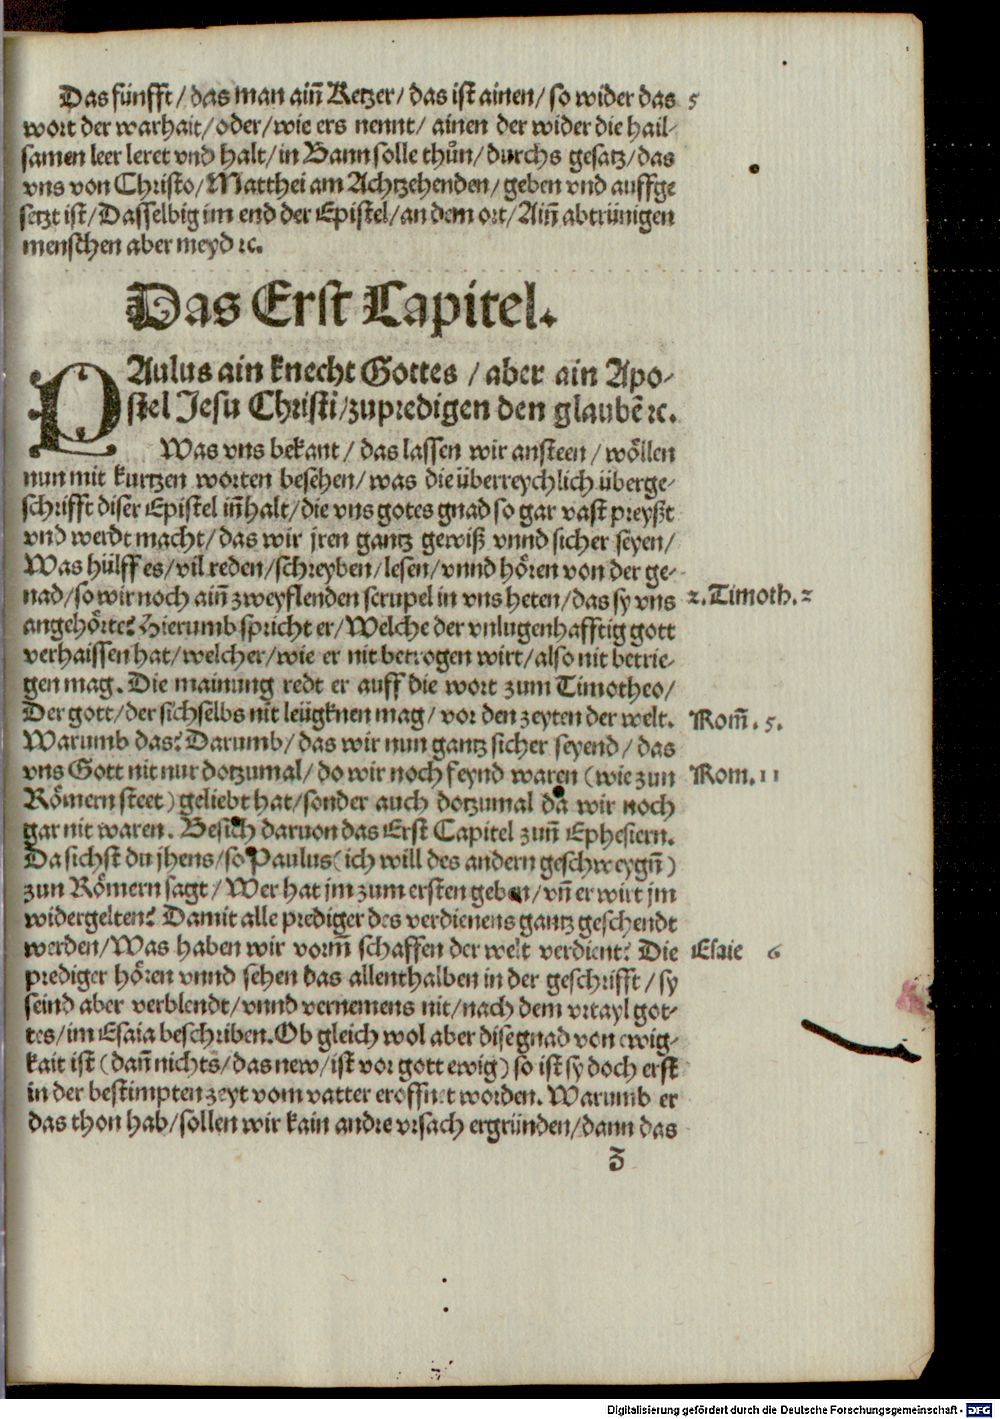 Das fünfft / das man aiñ Ketzer / das ist ainen / so wider das 5
wort der warhait / oder / wie ers nennt / ainen der wider die hail-
samen leer leret vnd halt / in Bann solle thůn / durchs gesatz / das
vns von Christo / Matthei am Achtzehenden / geben vnd auffge
setzt ist / Dasselbig im end der Epistel / an dem ort / Aiñ abtrünigen
menschen aber meyd ꝛc.
Das Erst Capitel.
PAulus ain knecht Gottes / aber ain Apo-
stel Jesu Christi / zupredigen den glaubē ꝛc.
Was vns bekant / das lassen wir ansteen / wöllen
nun mit kurtzen worten besehen / was die überreychlich überge-
schrifft diser Epistel iñhalt / die vns gotes gnad so gar vast preyßt
vnd werdt macht / das wir jren gantz gewiß vnnd sicher seyen /
Was hülff es / vil reden / schreyben / lesen / vnnd hören von der ge-
nad / so wir noch aiñ zweyflenden scrupel in vns heten / das sy vns
2. Timoth. 2
angehörte? Hierumb spricht er / Welche der vnlugenhafftig gott
verhaissen hat / welcher / wie er nit betrogen wirt / also nit betrie-
gen mag. Die mainung redt er auff die wort zum Timotheo /
Der gott / der sich selbs nit leügknen mag / vor den zeyten der welt.
Rom̃. 5.
Warumb das? Darumb / das wir nun gantz sicher seyend / das
vns Gott nit nur dotzumal / do wir noch feynd waren (wie zun
Rom. 11
Römern steet) geliebt hat / sonder auch dotzumal da wir noch
gar nit waren. Besich daruon das Erst Capitel zuñ Ephesiern.
Da sichst du jhens / so Paulus (ich will des andern geschweygñ)
zun Römern sagt / Wer hat jm zum ersten geben / vñ er wirt jm
widergelten? Damit alle prediger des verdienens gantz geschendt
werden / Was haben wir vorm̃ schaffen der welt verdient? Die
Esaie 6
prediger hören vnnd sehen das allenthalben in der geschrifft / sy
seind aber verblendt / vnnd vernemens nit / nach dem vrtayl got-
tes / im Esaia beschriben. Ob gleich wol aber dise gnad von ewig-
kait ist (dañ nichts / das new / ist vor gott ewig) so ist sy doch erst
in der bestimpten zeyt vom vatter eroffnet worden. Warumb er
das thon hab / sollen wir kain andre vrsach ergründen / dann das
Z
Digitalisierung gefördert durch die Deutsche Forschungsgemeinschaft - DFG